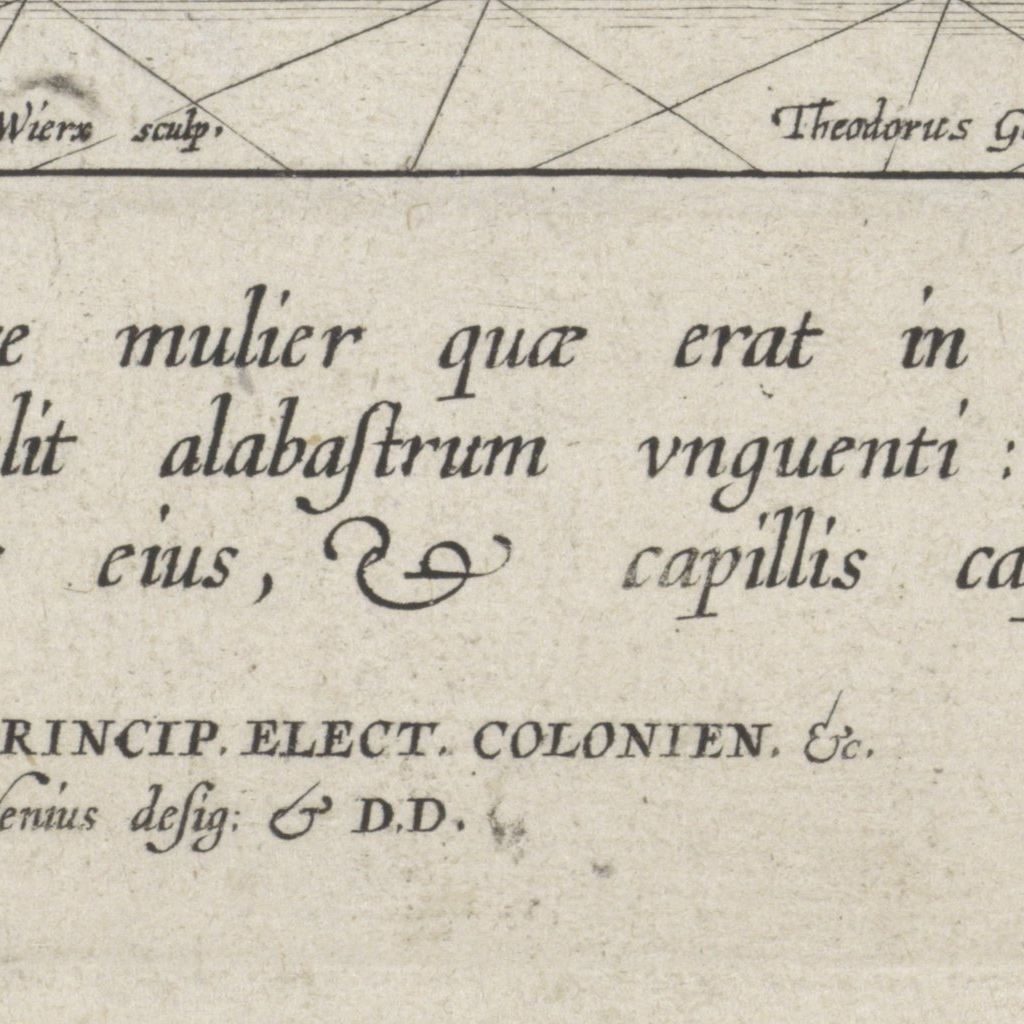 Wierx sculp. Theodorus G
e mulier quæ erat in
lit alabaſtrum vnguenti :
eius, & capillis ca
RINCIP. ELECT. COLONIEN. &c.
enius deſig: & D.D.